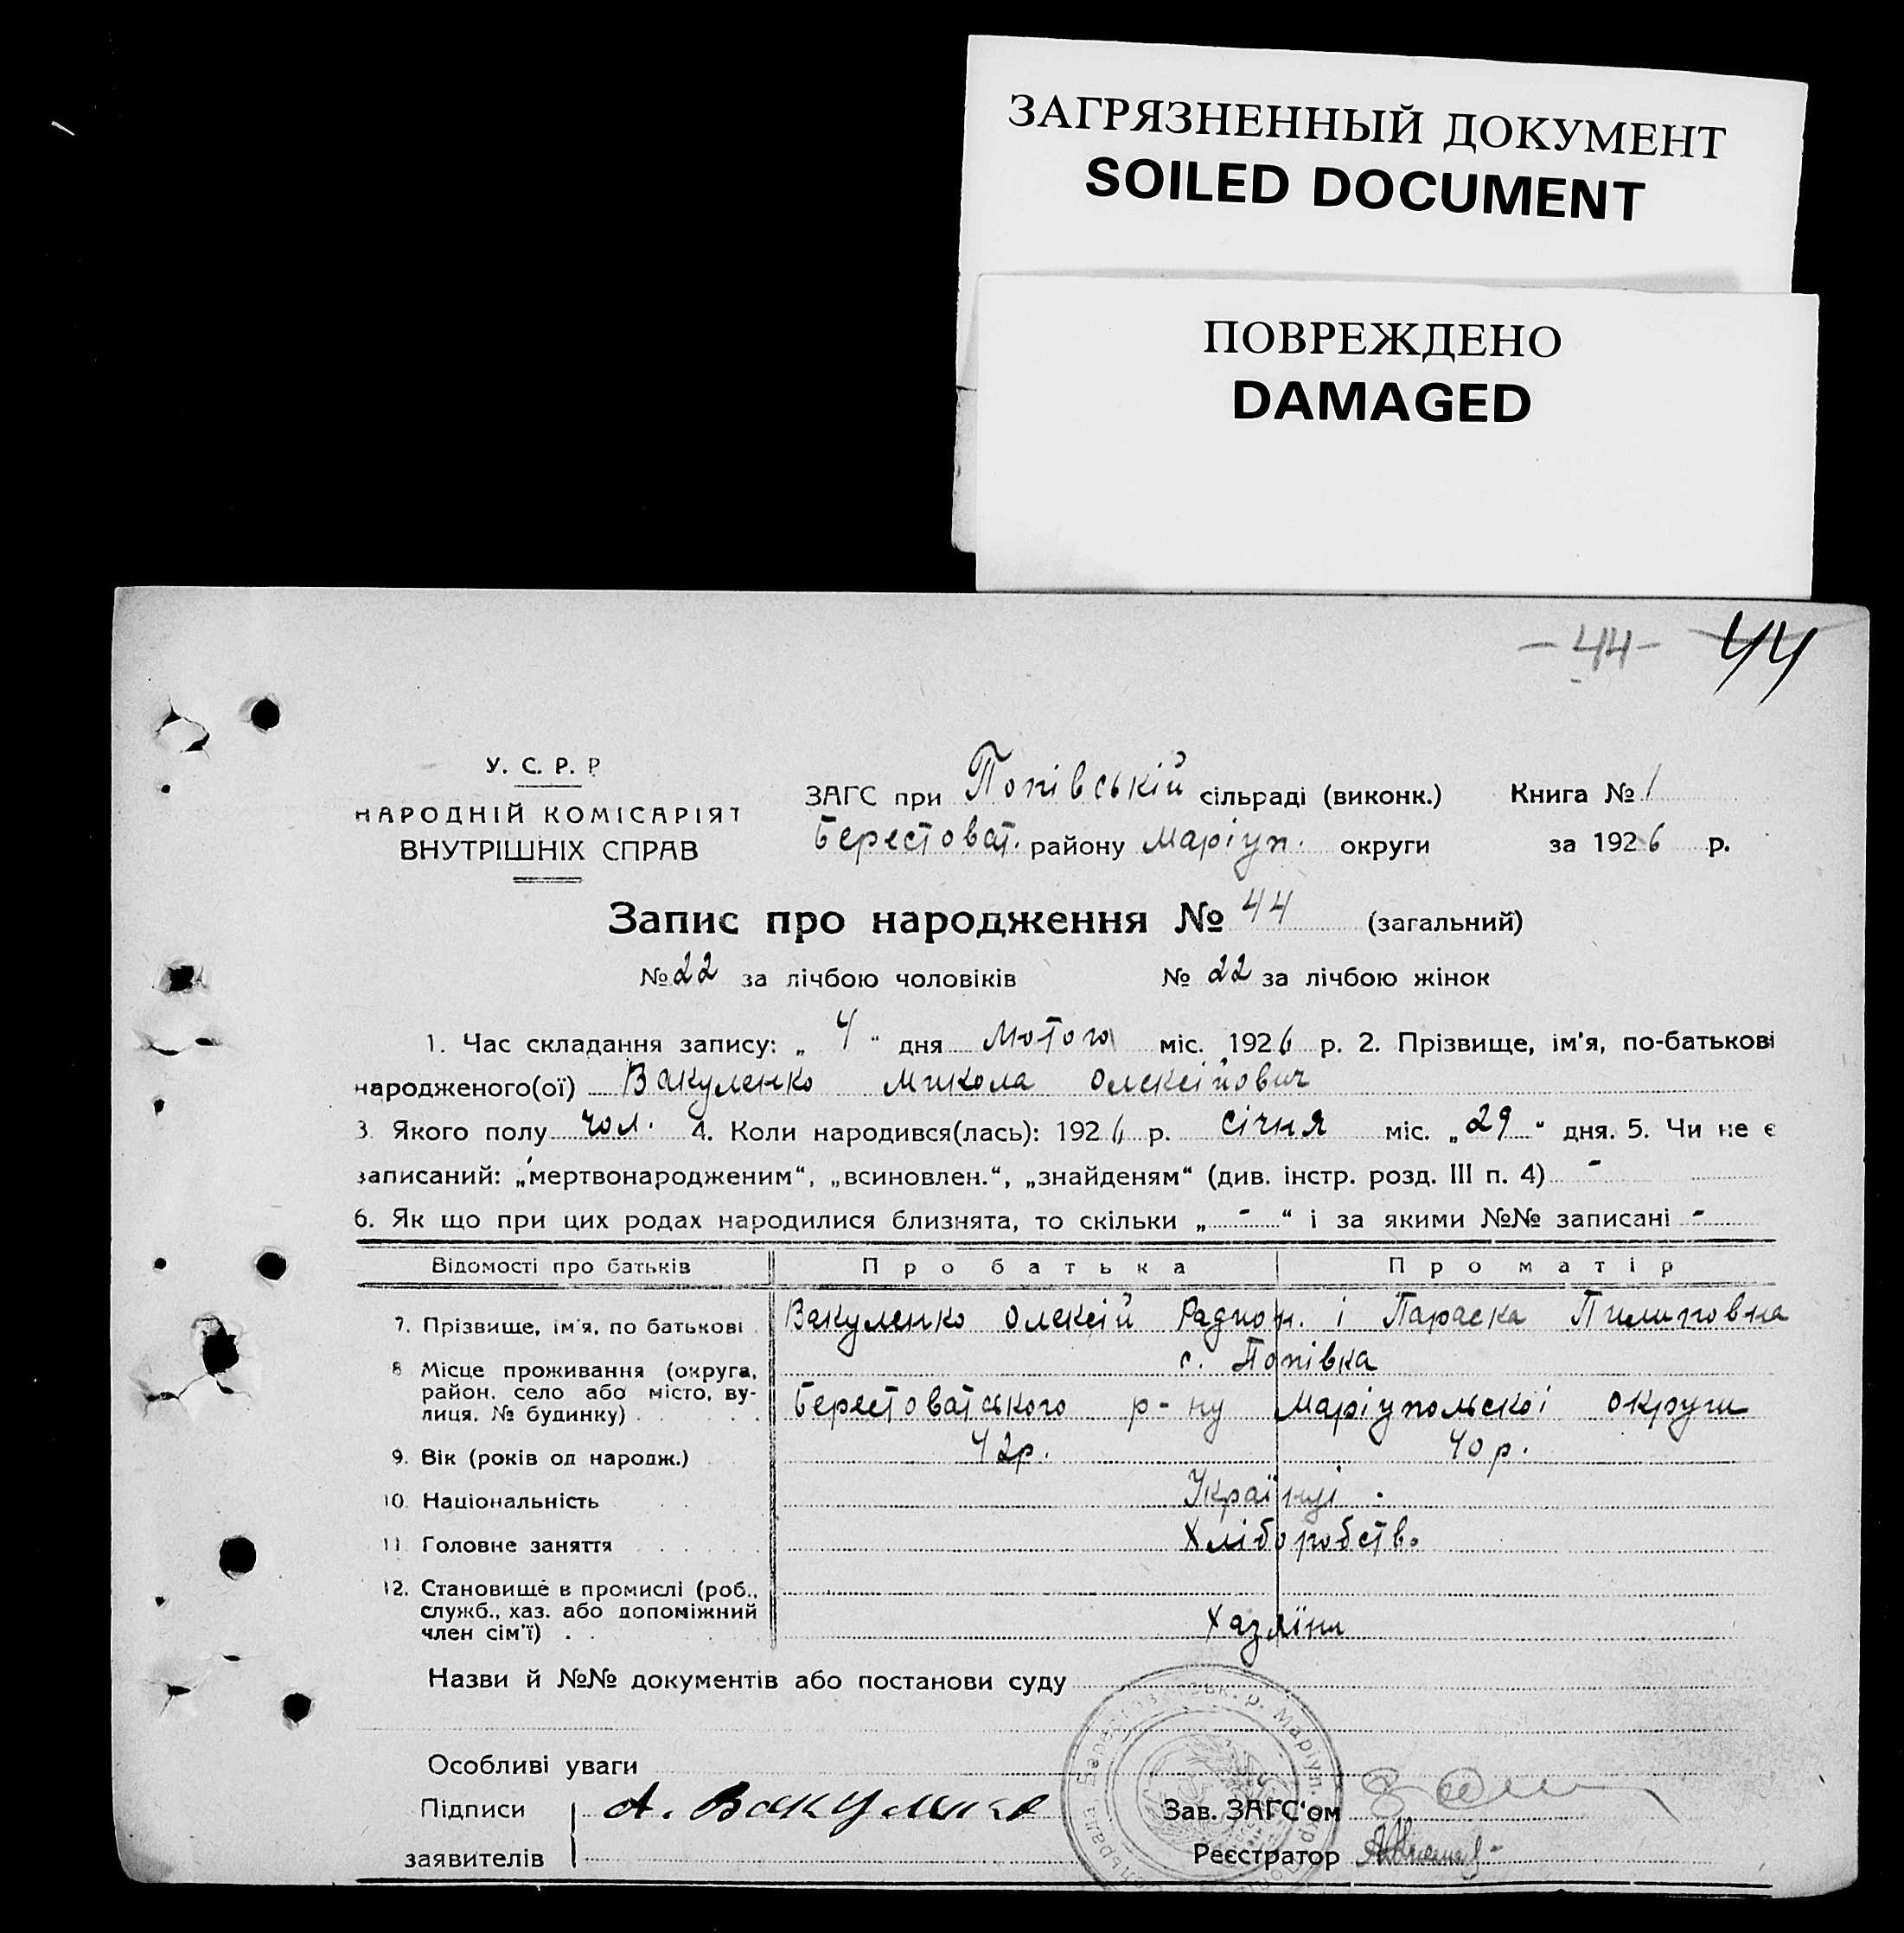 ЗАГРЯЗНЕННЫЙ ДОКУМЕНТ
SOILED DOCUMENT
ПОВРЕЖДЕНО
DAMAGED
- 44 - 44
У. С. Р. Р
НАРОДНІЙ КОМІСАРІЯТ
ВНУТРІШНІХ СПРАВ
ЗАГС при Попівській сільраді (виконк.) Книга № 1
Берестоват. району Маріуп. округи за 1926 р.
Запис про народження № 44 (загальний)
№ 22 за лічбою чоловіків № 22 за лічбою жінок
1. Час складання запису: „ 4 “ дня Лютого міс. 1926 р. 2. Прізвище, ім'я, по-батькові
народженого(ої) Вакуленко Микола Олексійович
3. Якого полу чол. 4. Коли народився(лась): 1926 р. січня міс. „ 29 “ дня. 5. Чи не є
записаний: „мертвонародженим“, „всиновлен.“, „знайденям“ (див. інстр. розд. III п. 4) -
6. Як що при цих родах народилися близнята, то скільки „ - “ і за якими №№ записані -
Відомості про батьків Про батька Про матір
7. Прізвище, ім'я, по батькові Вакуленко Олексій Радион. і Параска Пилиповна
8 Місце проживання (округа, с. Попівка
район, село або місто, ву-
лиця, № будинку) . . . Берестоватського р-ну Маріупольскої округи
9. Вік (років од народж.) 42р. 40р.
10. Національність Українці .
11 Головне заняття Хліборобств.
12. Становище в промислі (роб.,
служб., хаз. або допоміжний
член сім'ї) . . Хазяїни
Назви й №№ документів або постанови суду
Особливі уваги
Підписи А. Вакуленко Зав. ЗАГС'ом
заявителів Реєстратор